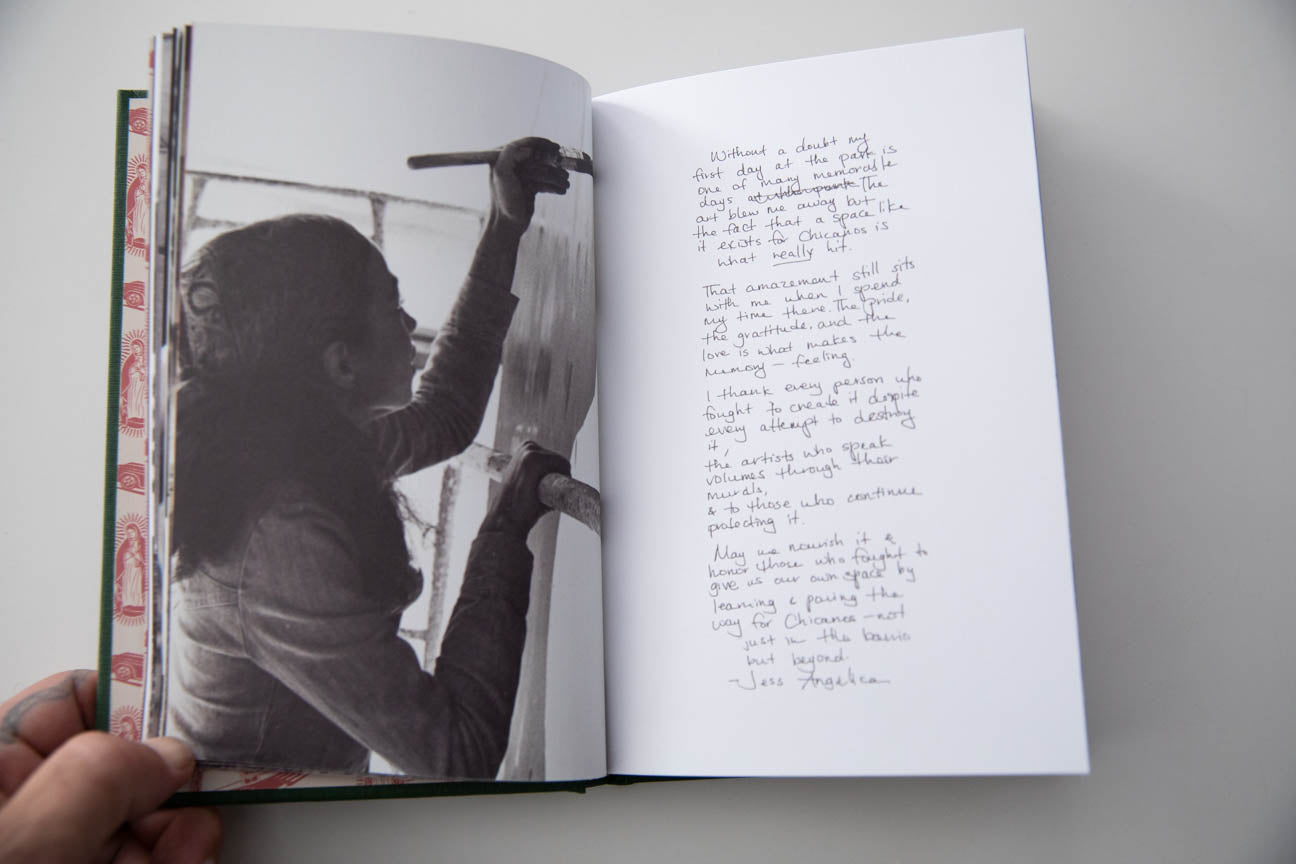 Without a doubt my
first day at the park is
one of many memorable
days at the park The
art blew me away but
the fact that a space like
it exists for Chicanos is
what really hit.
That amazement still sits
with me when I spend
my time there. The pride,
the gratitude, and the
love is what makes the
memory — feeling.
I thank every person who
fought to create it despite
every attempt to destroy
it,
the artists who speak
volumes through their
murals,
& to those who continue
protecting it.
May we nourish it &
honor those who fought to
give us our own space by
learning & paving the
way for Chicanos — not
just in the barrio
but beyond.
- Jess Angelica